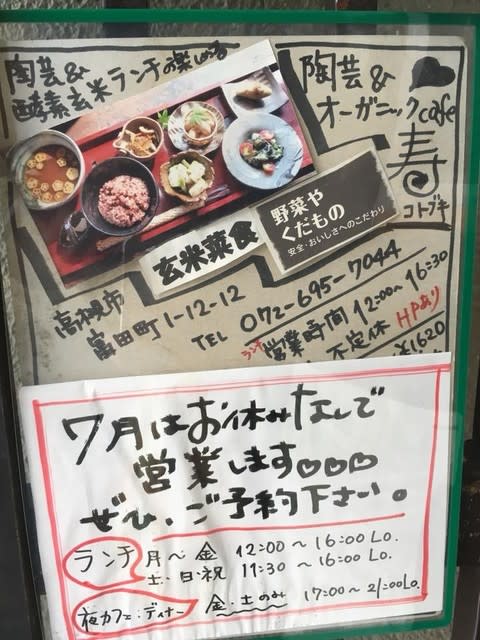 陶芸&
酵素玄米ランチの楽しめる
陶芸&
オーガニックcafe
寿
コトブキ
玄米菜食
野菜や
くだもの
安全・おいしさへのこだわり
高槻市
富田町1-12-12
TEL 072-695-7044
ランチ営業時間 12:00〜16:30
不定休 HPあり
¥1620
7月はお休みなしで
営業します♡♡♡
ぜひ、ご予約下さい。
ランチ 月〜金 12:00〜16:00 L.O.
土・日・祝 11:30〜16:00 L.O.
夜カフェ・ディナー 金・土のみ 17:00〜21:00 L.O.